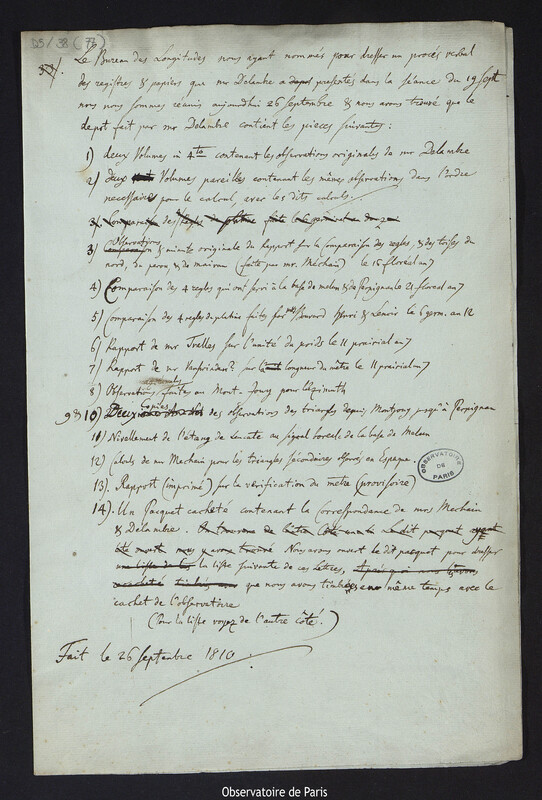 D5/38 (77)
Le Bureau des Longitudes nous ayant nommés pour dresser un procès verbal
des registres & papiers que mr Delambre a depot presentés dans la séance du 19 Sept
nous nous sommes réunis aujourdhui 26 Septembre & nous avons trouvé que le
depot fait par mr Delambre contient les pieces suivantes :
1) deux Volumes in 4to contenant les observations originales de mr Delambre
2) deux Volumes pareilles contenant les mêmes observations dans l'ordre
necessaire pour le calcul, avec les dits calculs.
3. Comparaison des regles de platine faite
Observations
3) Comparaison & minute originale du Rapport sur la comparaison des regles, & des toises du
nord, du perou & de mairan (faite par mr. Méchain) le 15 floreal an 7
4) Comparaison des 4 regles qui ont servi à la base de melun & de Perpignan le 21 floreal an 7
5) Comparaison des 4 regles de platine faits par mrs Bouvard & Lenoir le 6 germ. an 12
6) Rapport de mr Tralles sur l'unité du poids le 11 prairial an 7
7) Rapport de mr Vanswinden sur la longueur du mètre le 11 prairial an 7
8) Observations faites au Mont-Jouy pour l'azimuth
9 & 10) Deux copies des observations des triangles depuis Montjouy jusqu'à Perpignan
11) Nivellement de l'étang de Leucate au signal boreal de la base de Melun
12) Calculs de mr Mechain pour les triangles secondaires observés en Espagne.
13). Rapport (imprimé) sur la vérification du mètre (provisoire)
14). Un Pacquet cacheté contenant la correspondance de mrs Mechain
& Delambre. Nous avons ouvert le dit pacquet pour dresser
la liste suivante de ces lettres,
que nous avons timbrées en même temps avec le
cachet de l'observatoire
(Pour la liste voyez de l'autre côté.)
Fait le 26 Septembre 1810
OBSERVATOIRE
DE
PARIS
Observatoire de Paris